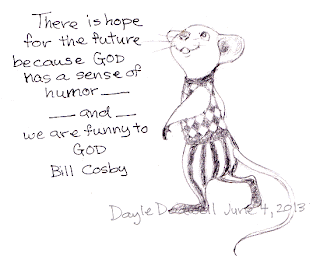 There is hope
for the future
because GOD
has a sense of
humor___
___and__
we are funny to
GOD
Bill Cosby
Dayle Doroshow June 4, 2013